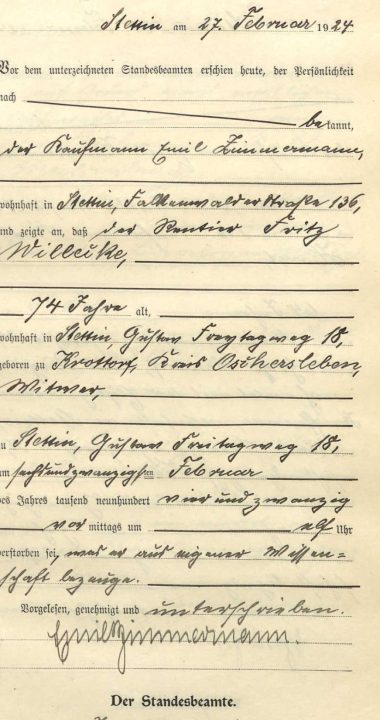 Stettin am 27. Februar 1924
Vor dem unterzeichneten Standesbeamten erschien heute, der Persönlichkeit
nach
bekannt,
der Kaufmann Emil Zimmermann,
wohnhaft in Stettin, Falkenwalderstraße 136,
und zeigte an, daß der Rentier Fritz
Willecke,
74 Jahre alt,
wohnhaft in Stettin, Gustav Freytagweg 18,
geboren zu Krottorf, Kreis Oschersleben,
Witwer,
zu Stettin, Gustav Freitagweg 18,
am sechsundzwanzigsten Februar
des Jahres tausend neunhundert vier und zwanzig
vor mittags um elf Uhr
verstorben sei, was er aus eigener Wissen=
schaft bezeuge.
Vorgelesen, genehmigt und unterschrieben.
Emil Zimmermann.
Der Standesbeamte.